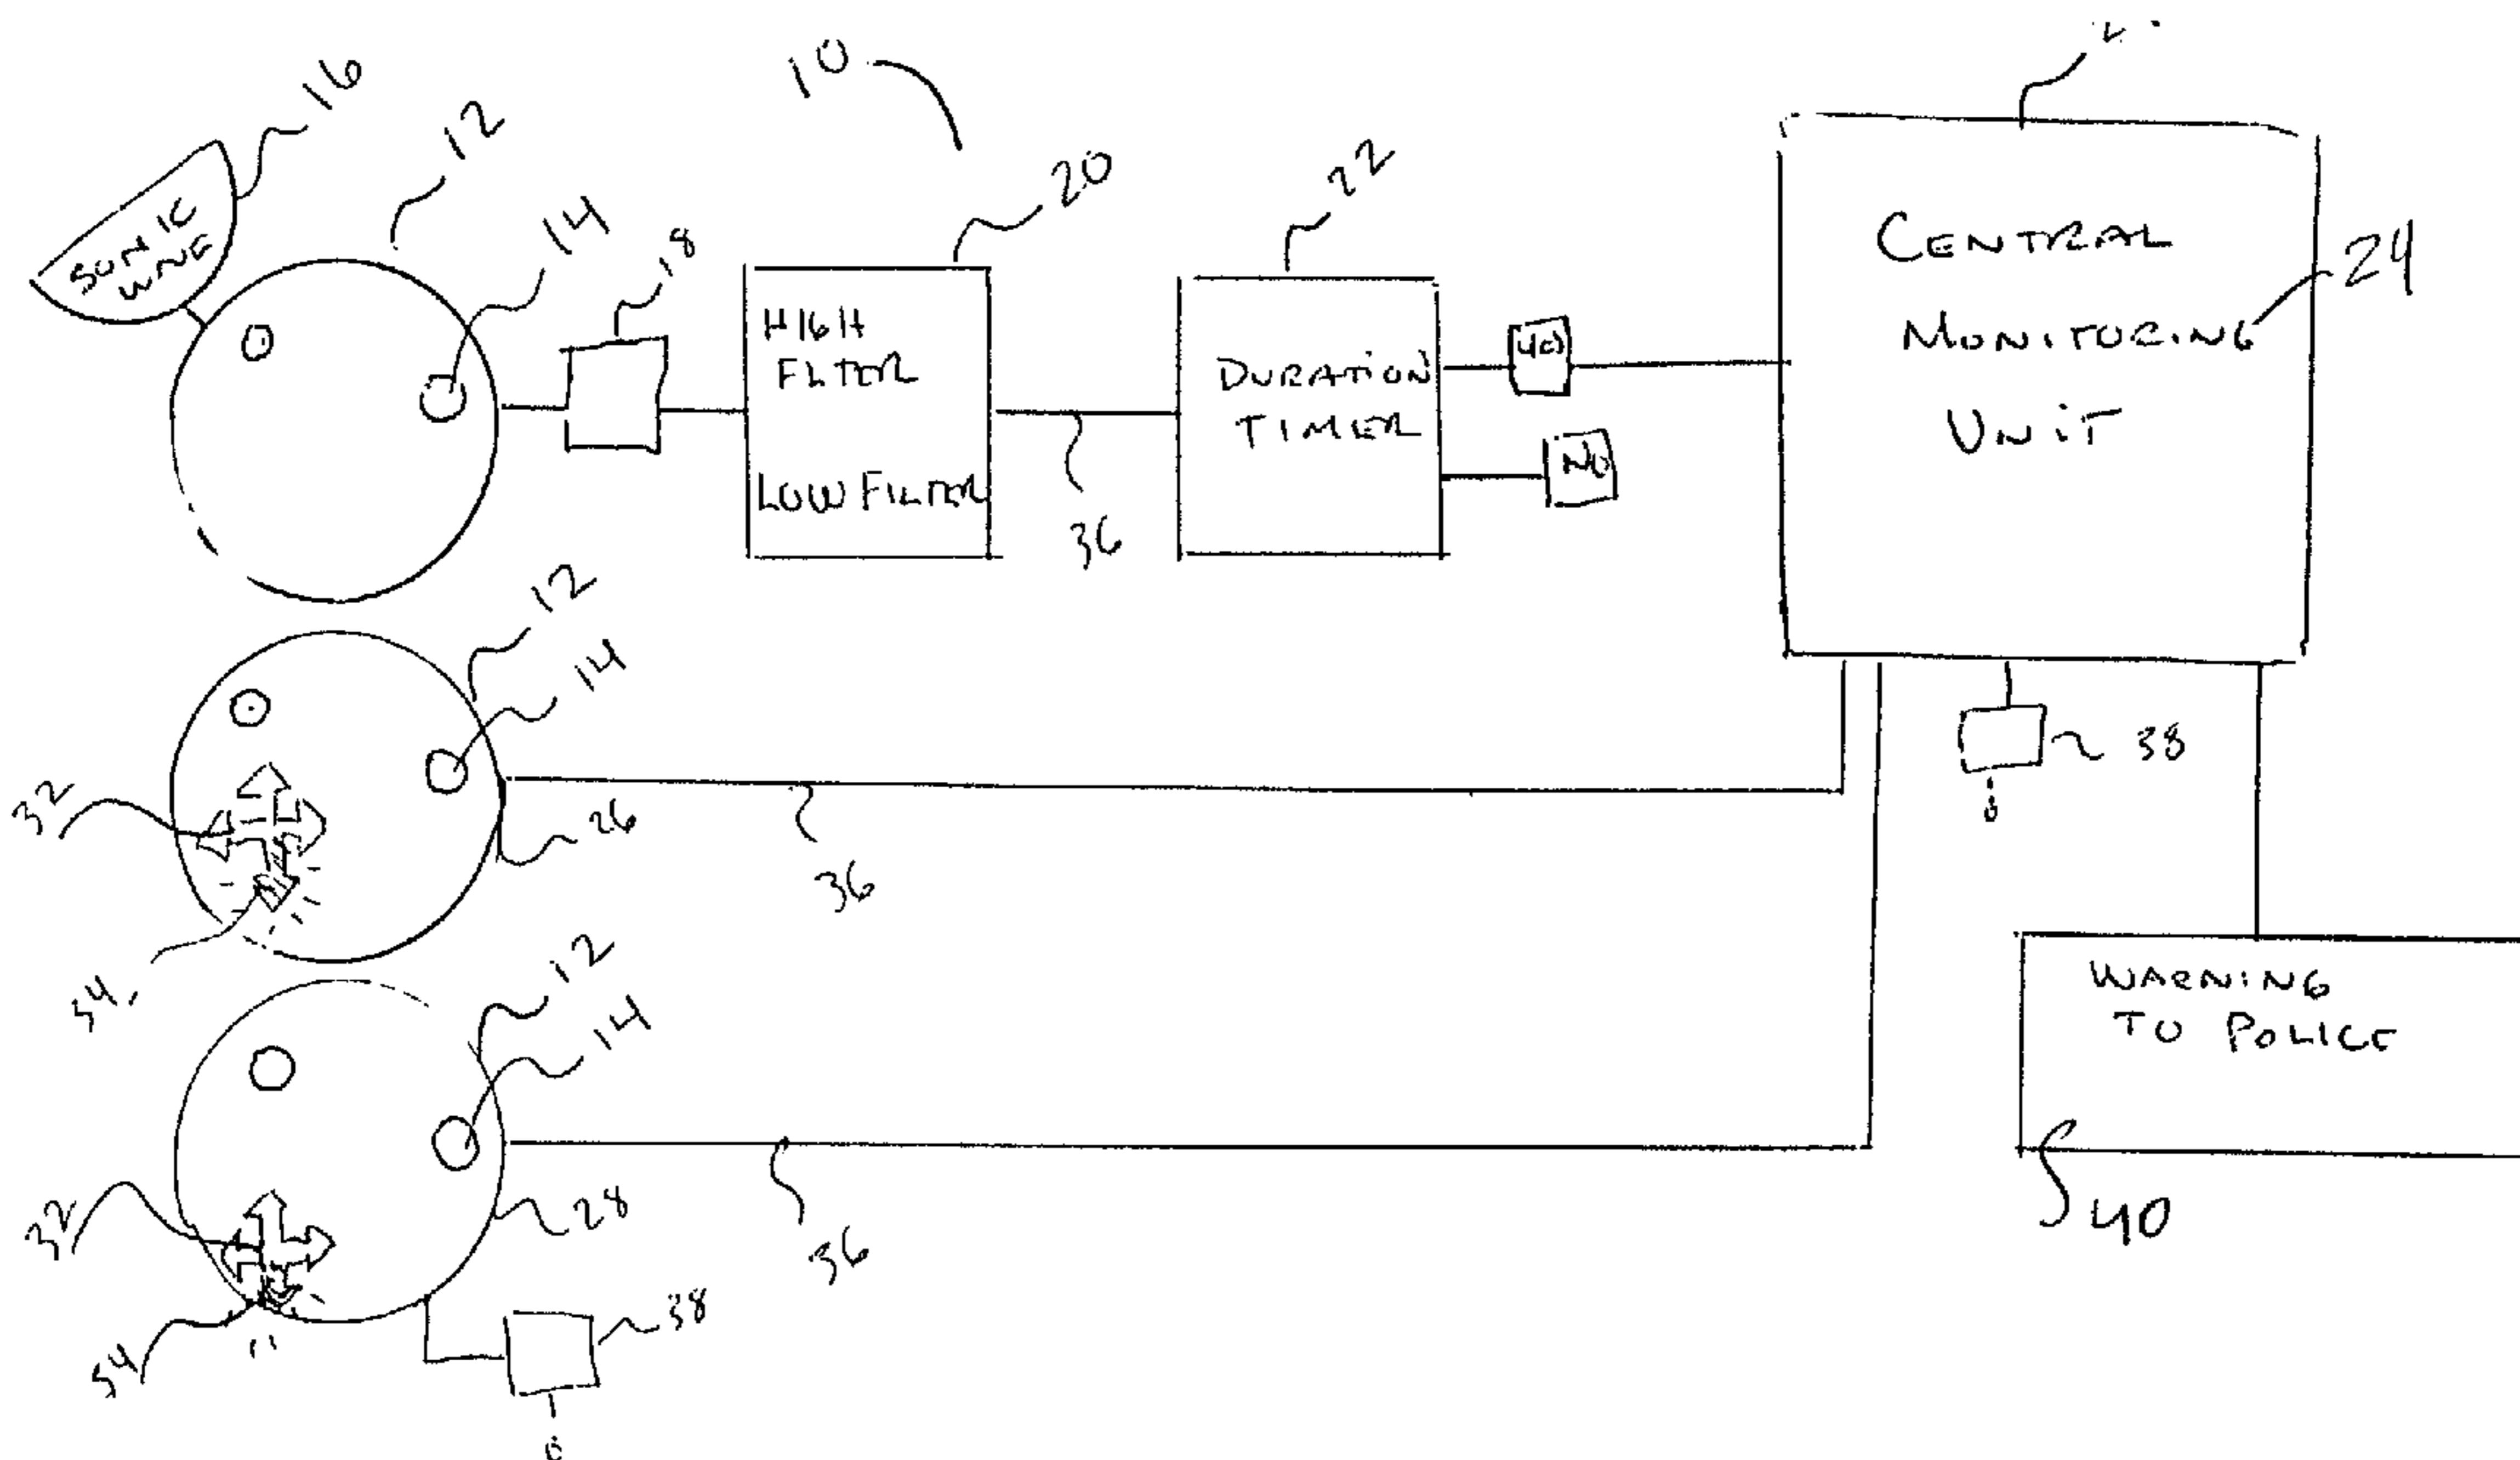 10
16
12
SONIC
WAVE
14
18
20
HIGH
FILTER
LOW FILTER
36
22
DURATION
TIMER
NO
CENTRAL
MONITORING
UNIT
24
12
14
32
26
36
34
38
12
14
32
28
36
54
38
WARNING
TO POLICE
40